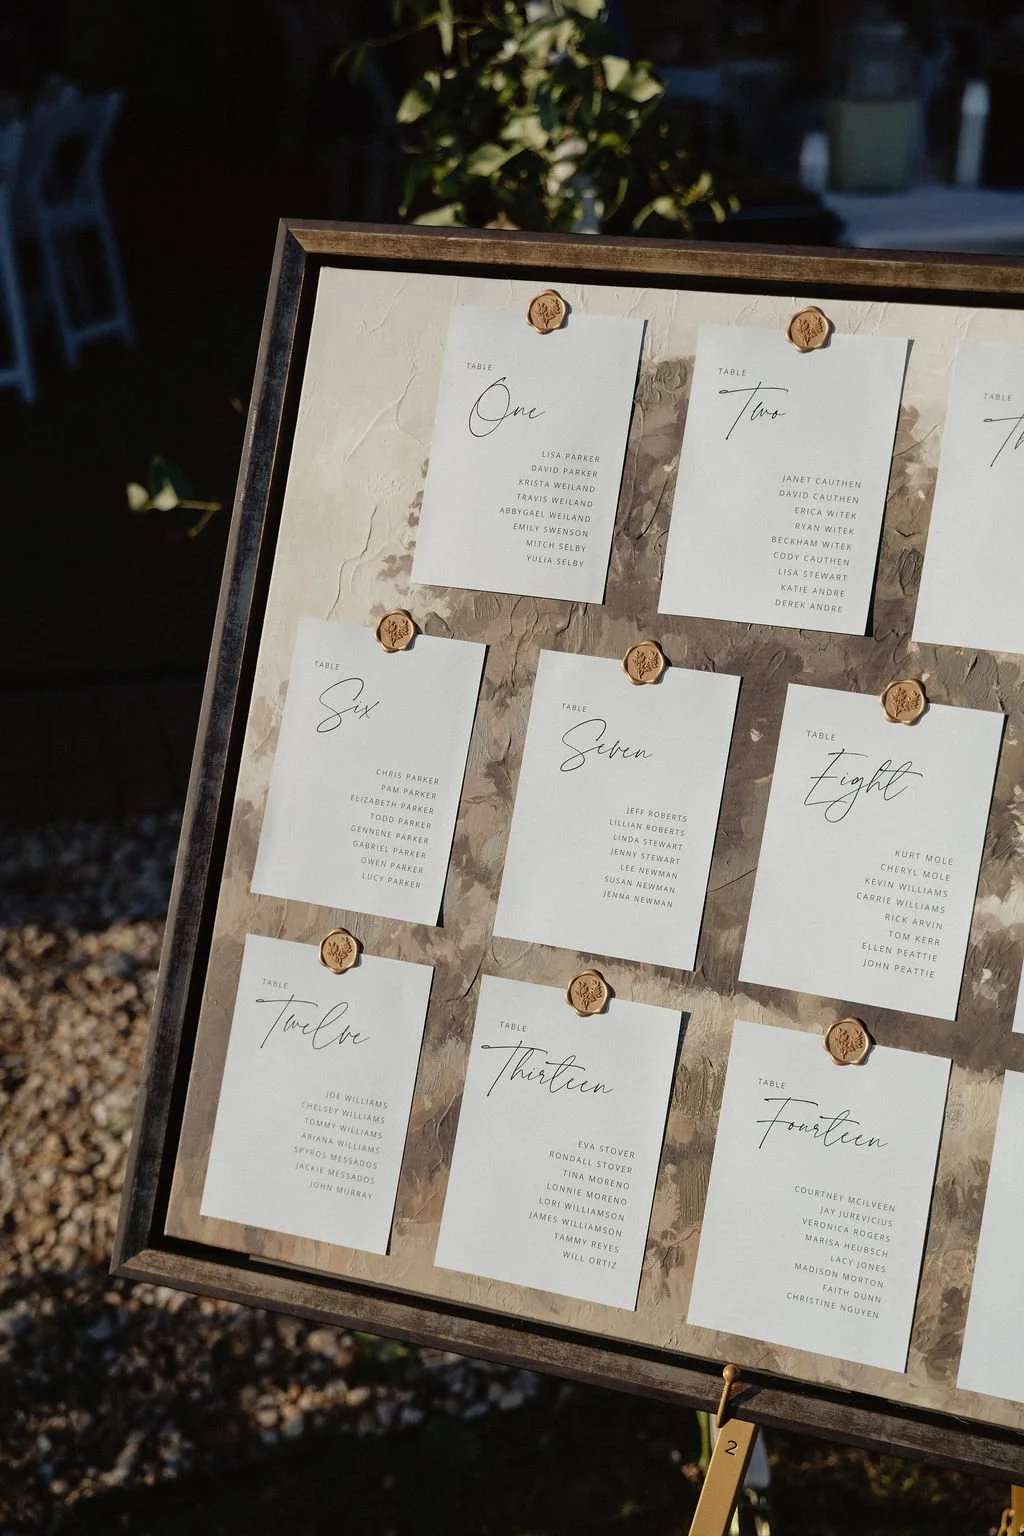 TABLE
One
LISA PARKER
DAVID PARKER
KRISTA WEILAND
TRAVIS WEILAND
ABBYGAEL WEILAND
EMILY SWENSON
MITCH SELBY
YULIA SELBY
TABLE
Two
JANET CAUTHEN
DAVID CAUTHEN
ERICA WITEK
RYAN WITEK
BECKHAM WITEK
CODY CAUTHEN
LISA STEWART
KATIE ANDRE
DEREK ANDRE
TABLE
Th
TABLE
Six
CHRIS PARKER
PAM PARKER
ELIZABETH PARKER
TODD PARKER
GENNENE PARKER
GABRIEL PARKER
OWEN PARKER
LUCY PARKER
TABLE
Seven
JEFF ROBERTS
LILLIAN ROBERTS
LINDA STEWART
JENNY STEWART
LEE NEWMAN
SUSAN NEWMAN
JENNA NEWMAN
TABLE
Eight
KURT MOLE
CHERYL MOLE
KEVIN WILLIAMS
CARRIE WILLIAMS
RICK ARVIN
TOM KERR
ELLEN PEATTIE
JOHN PEATTIE
TABLE
Twelve
JOE WILLIAMS
CHELSEY WILLIAMS
TOMMY WILLIAMS
ARIANA WILLIAMS
SPYROS MESSADOS
JACKIE MESSADOS
JOHN MURRAY
TABLE
Thirteen
EVA STOVER
RONDALL STOVER
TINA MORENO
LONNIE MORENO
LORI WILLIAMSON
JAMES WILLIAMSON
TAMMY REYES
WILL ORTIZ
TABLE
Fourteen
COURTNEY MCILVEEN
JAY JUREVICIUS
VERONICA ROGERS
MARISA HEUBSCH
LACY JONES
MADISON MORTON
FAITH DUNN
CHRISTINE NGUYEN
2